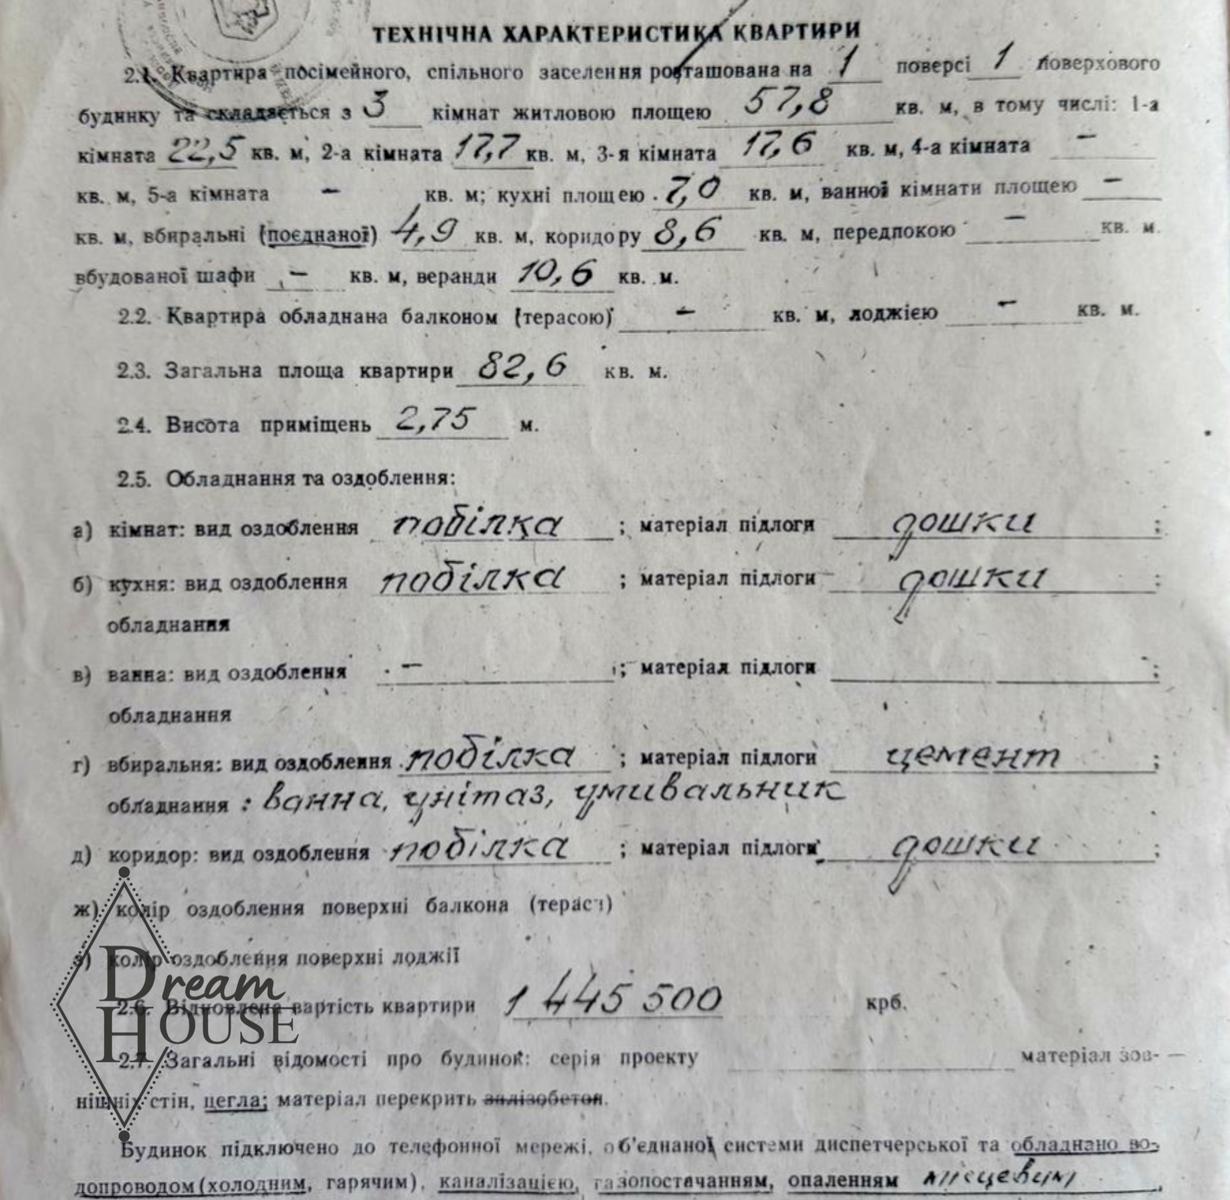 ТЕХНІЧНА ХАРАКТЕРИСТИКА КВАРТИРИ
2.1. Квартира посімейного, спільного заселення розташована на 1 поверсі 1 поверхового
будинку та складається з 3 кімнат житловою площею 57,8 кв. м, в тому числі: 1-а
кімната 22,5 кв. м, 2-а кімната 17,7 кв. м, 3-я кімната 17,6 кв. м, 4-а кімната —
кв. м, 5-а кімната — кв. м; кухні площею 7,0 кв. м, ванної кімнати площею —
кв. м, вбиральні (поєднаної) 4,9 кв. м, коридору 8,6 кв. м, передпокою — кв. м.
вбудованої шафи — кв. м, веранди 10,6 кв. м.
2.2. Квартира обладнана балконом (терасою) — кв. м, лоджією — кв. м.
2.3. Загальна площа квартири 82,6 кв. м.
2.4. Висота приміщень 2,75 м.
2.5. Обладнання та оздоблення:
а) кімнат: вид оздоблення побілка ; матеріал підлоги дошки ;
б) кухня: вид оздоблення побілка ; матеріал підлоги дошки ;
обладнання
в) ванна: вид оздоблення — ; матеріал підлоги ;
обладнання
г) вбиральня: вид оздоблення побілка ; матеріал підлоги цемент ;
обладнання : ванна, унітаз, умивальник
д) коридор: вид оздоблення побілка ; матеріал підлоги дошки ;
ж) колір оздоблення поверхні балкона (тераси)
з) колір оздоблення поверхні лоджії
Dream
HOUSE
2.6. Відновлена вартість квартири 1 445 500 крб.
2.7. Загальні відомості про будинок: серія проекту матеріал зов-
нішніх стін, цегла; матеріал перекрить залізобетон.
Будинок підключено до телефонної мережі, об'єднаної системи диспетчерської та обладнано во-
допроводом (холодним, гарячим), каналізацією, газопостачанням, опаленням місцевим